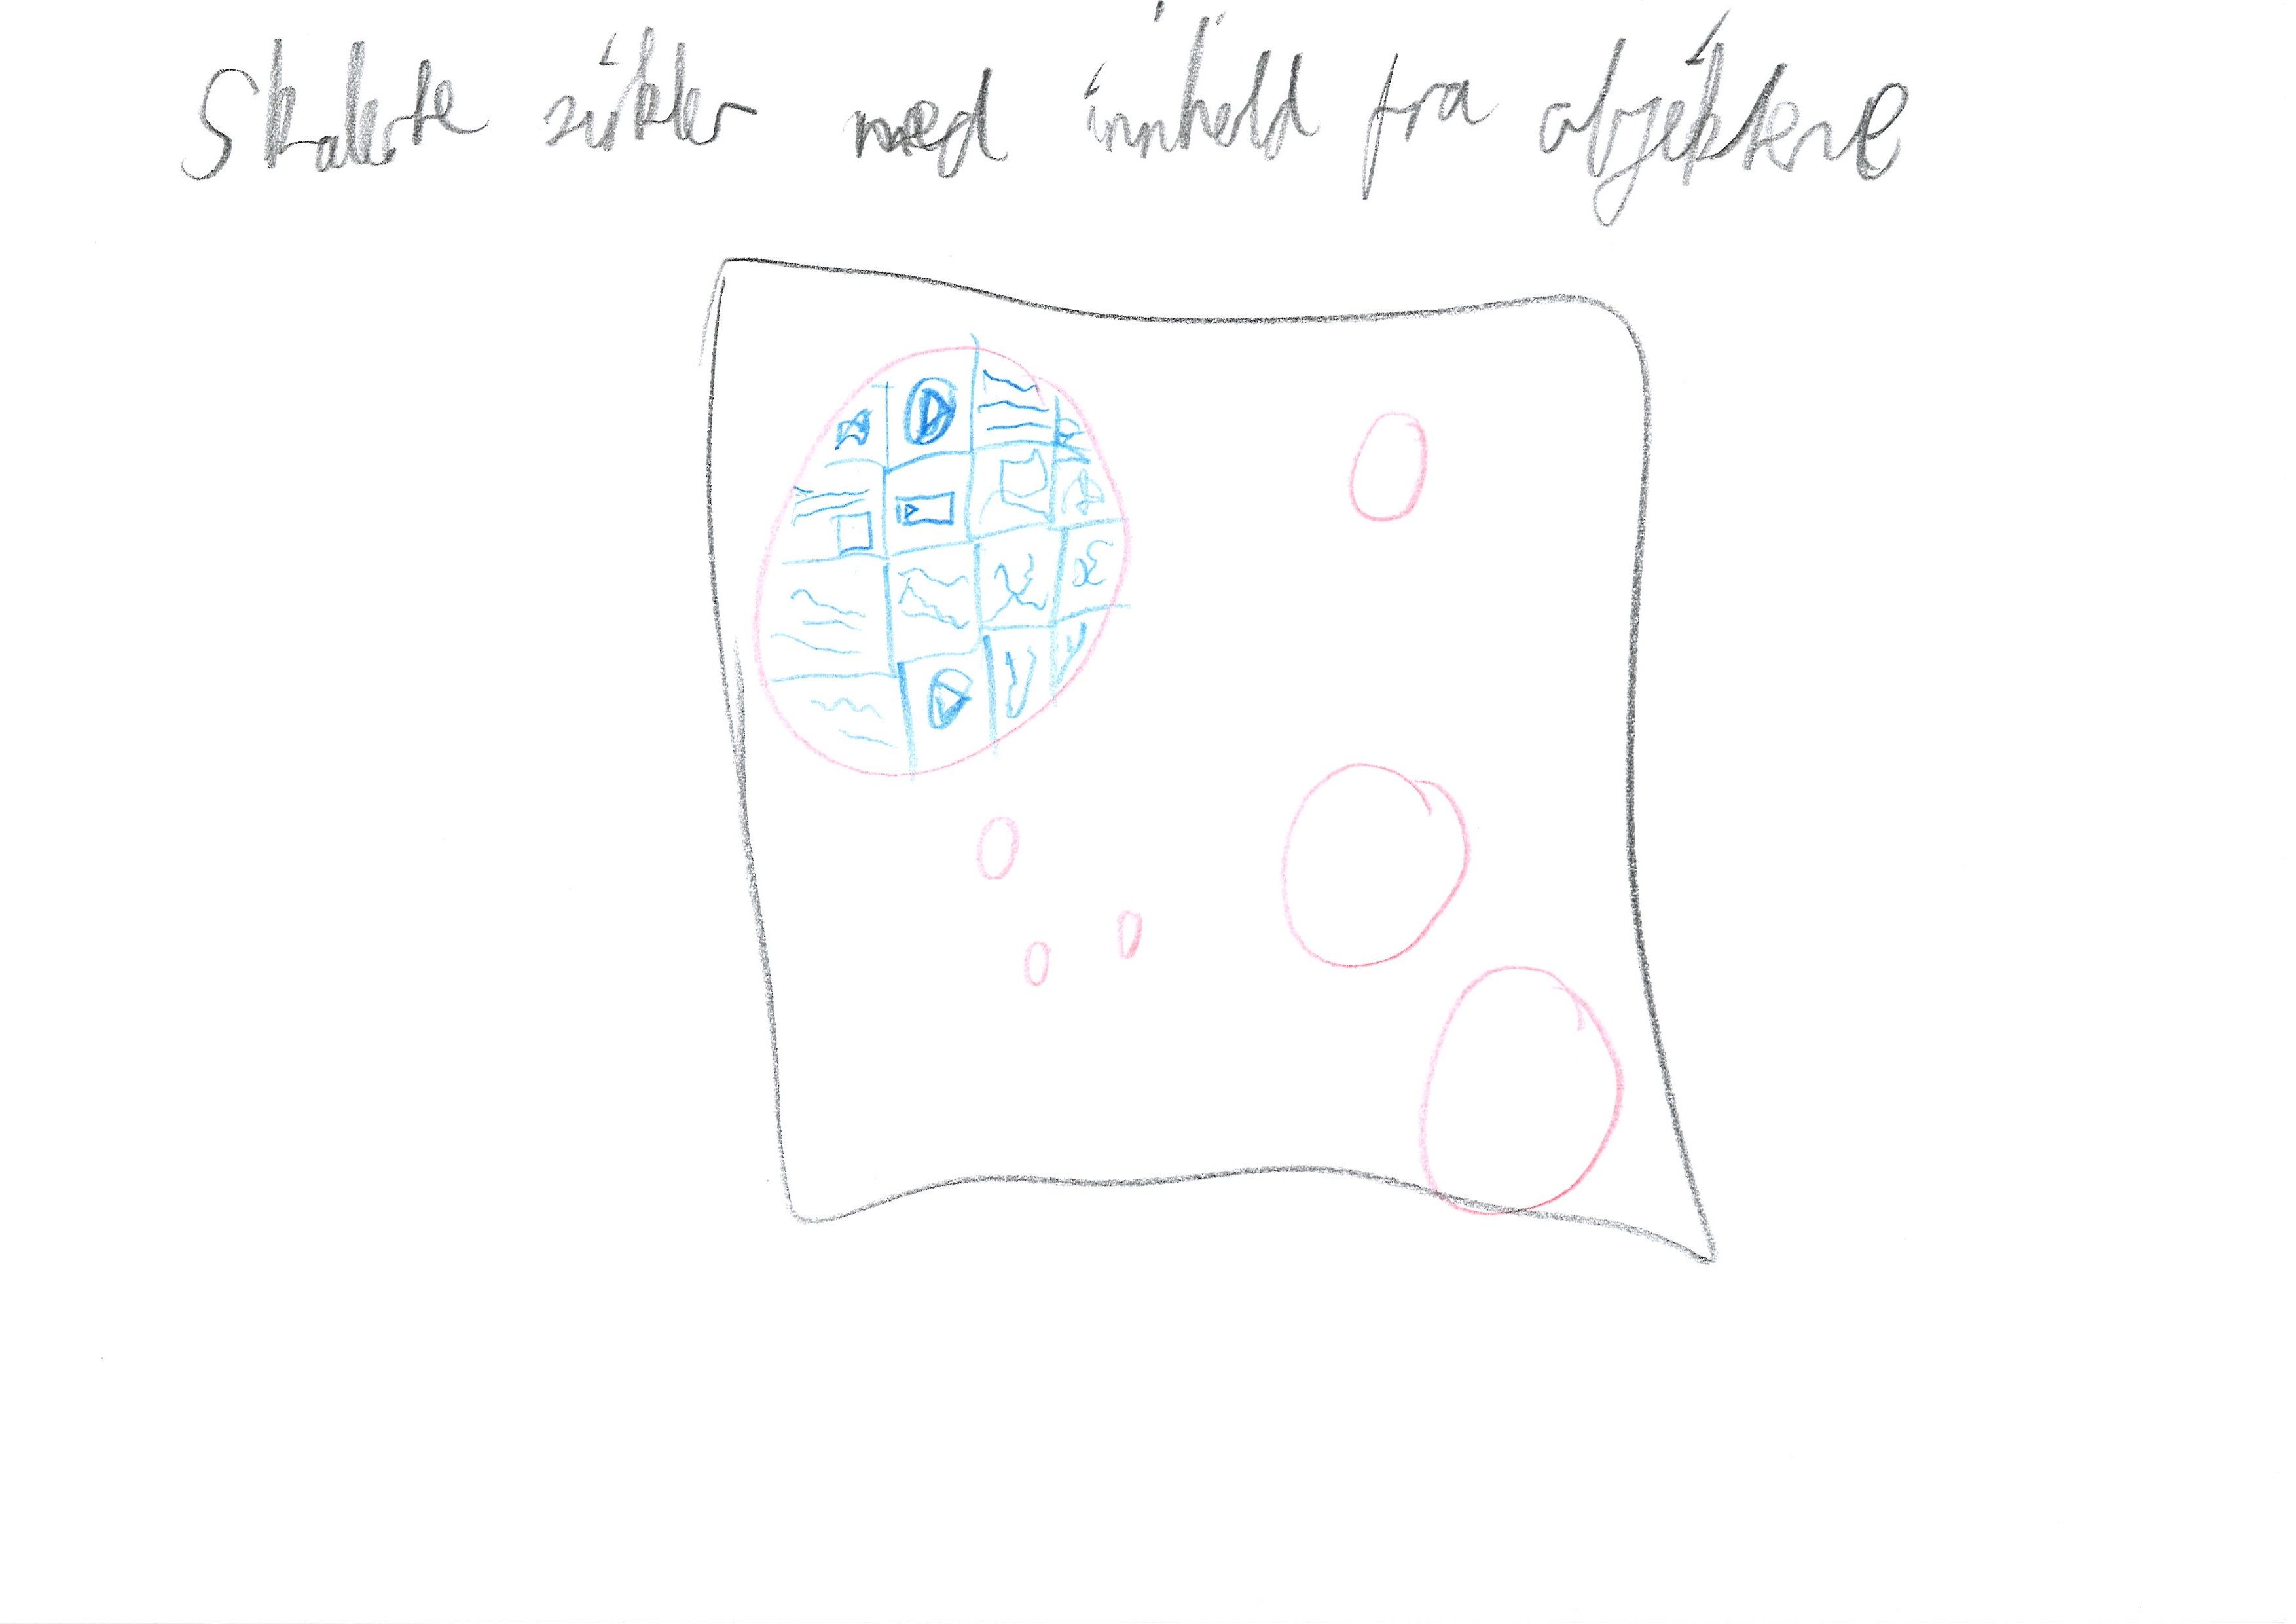 Skalerte sirkler med innhold fra objektene